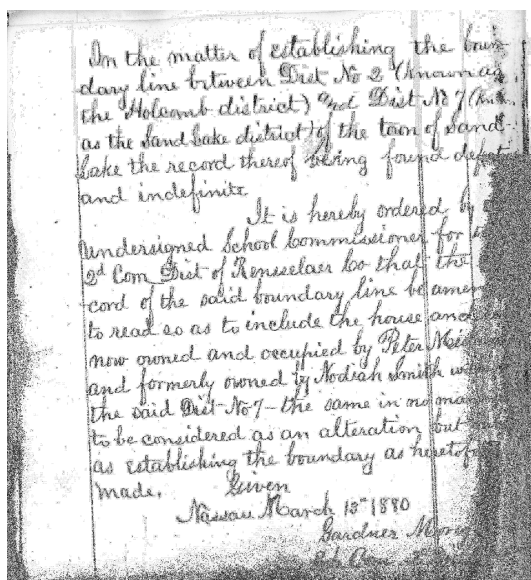 In the matter of establishing the boun-
dary line between Dist No 2 (known as
the Holcomb district) and Dist No 7 (
as the Sand Lake district) of the town of Sand-
Lake the record thereof being found
and indefinite
It is hereby ordered by
undersigned School Commissioner for
2d Com Dist of Rensselaer Co that the
cord of the said boundary line be
to read so as to include the house and
now owned and occupied by Peter
and formerly owned by Nodiah Smith
the said Dist No 7 - the same in no
to be considered as an alteration but
as establishing the boundary as
made. Given
Nassau March 13th 1880
Gardner
2d